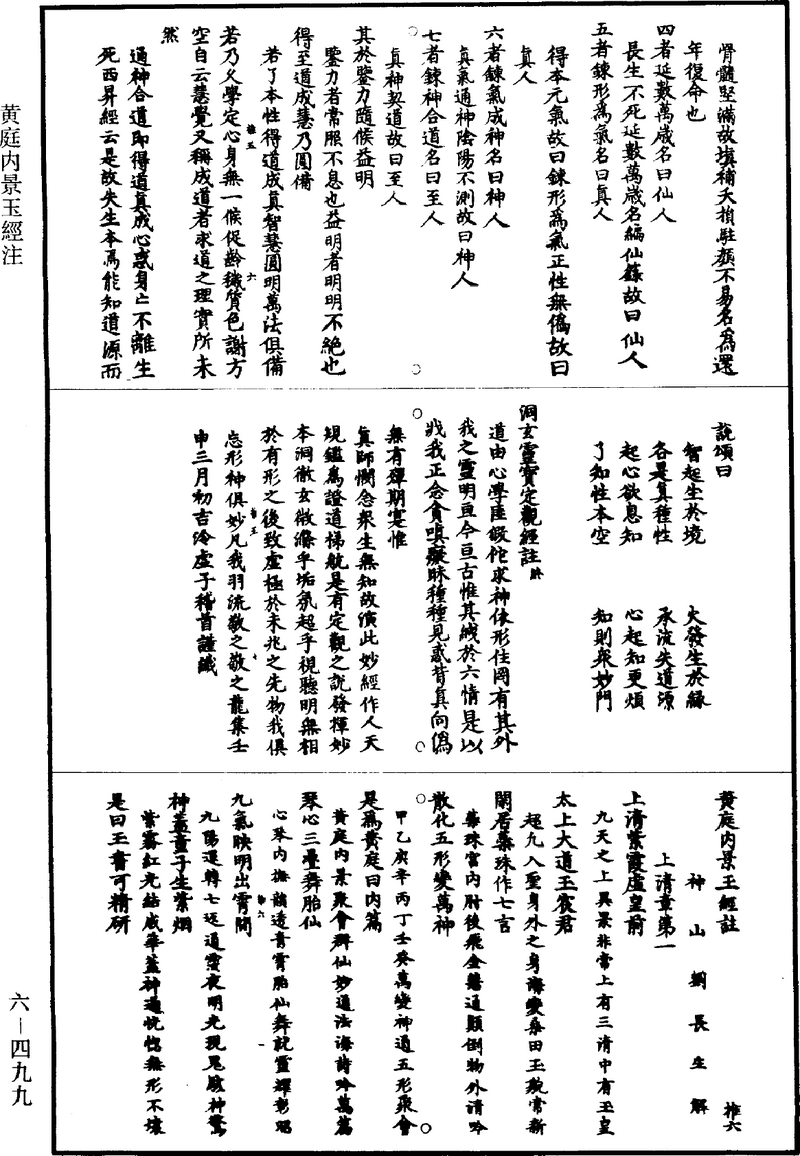 骨髓堅滿故填補夭損駐顏不易名爲還
年復命也
四者延數萬歲名曰仙人
長生不死延數萬歲名編仙籙故曰仙人
五者鍊形爲氣名曰真人
得本元氣故曰鍊形爲氣正性無僞故曰
真人
六者鍊氣成神名曰神人
真氣通神陰陽不測故曰神人
七者鍊神合道名曰至人
真神契道故曰至人
其於鑒力隨候益明
鑒力者常照不息也益明者明明不絕也
得至道成慧乃圓備
若了本性得道成真智慧圓明萬法俱備
若乃久學定心身無一候促齡穢質色謝方
空自云慧覺又稱成道者求道之理實所未
然
通神合道即得道真成心惑身亡不離生
死西昇經云是故失生本焉能知道源而
說頌曰
智起生於境 火發生於緣
各是真種性 承流失道源
起心欲息知 心起知更煩
了知性本空 知則衆妙門
洞玄靈寶定觀經註
道由心學匪假佗求神依形住罔有其外
我之靈明亘今亘古惟其緘於六情是以
戕我正念貪嗔癡昧種種見惑背真向僞
無有殫期寔惟
真師憫念衆生無知故演此妙經作人天
現鑑爲證道梯航是有定觀之說發揮妙
本洞徹玄微滌乎垢氛超乎視聽明無相
於有形之後致虛極於未兆之先物我俱
忘形神俱妙凡我羽流敬之敬之龍集壬
申三月初吉泠虛子稽首謹識
黃庭內景玉經註 推六
神山劉長生解
上清章第一
上清紫霞虛皇前
九天之上異景非常上有三清中有玉皇
太上大道玉宸君
超凡入聖身外之身海變桑田玉貌常新
閑居蘂珠作七言
蘂珠宮內肘後飛金藥通顛倒物外清吟
散化五形變萬神
甲乙庚辛丙丁壬癸萬變神通五形聚會
是爲黃庭曰內篇
黃庭內景聚會群仙妙通法海詩吟萬篇
琴心三疊舞胎仙
心琴內撫韻透青霄胎仙舞就靈輝彰昭
九氣映明出霄間
九陽運轉七返道靈夜明光現鬼駭神驚
神蓋童子生紫煙
紫霧紅光結成華蓋神通恍惚無形不壞
是曰玉書可精研
黄庭內景玉經注
六－四九九